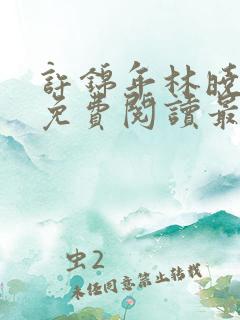 許錦年林曉
免費閱讀最
虫2
未經同意禁止轉載